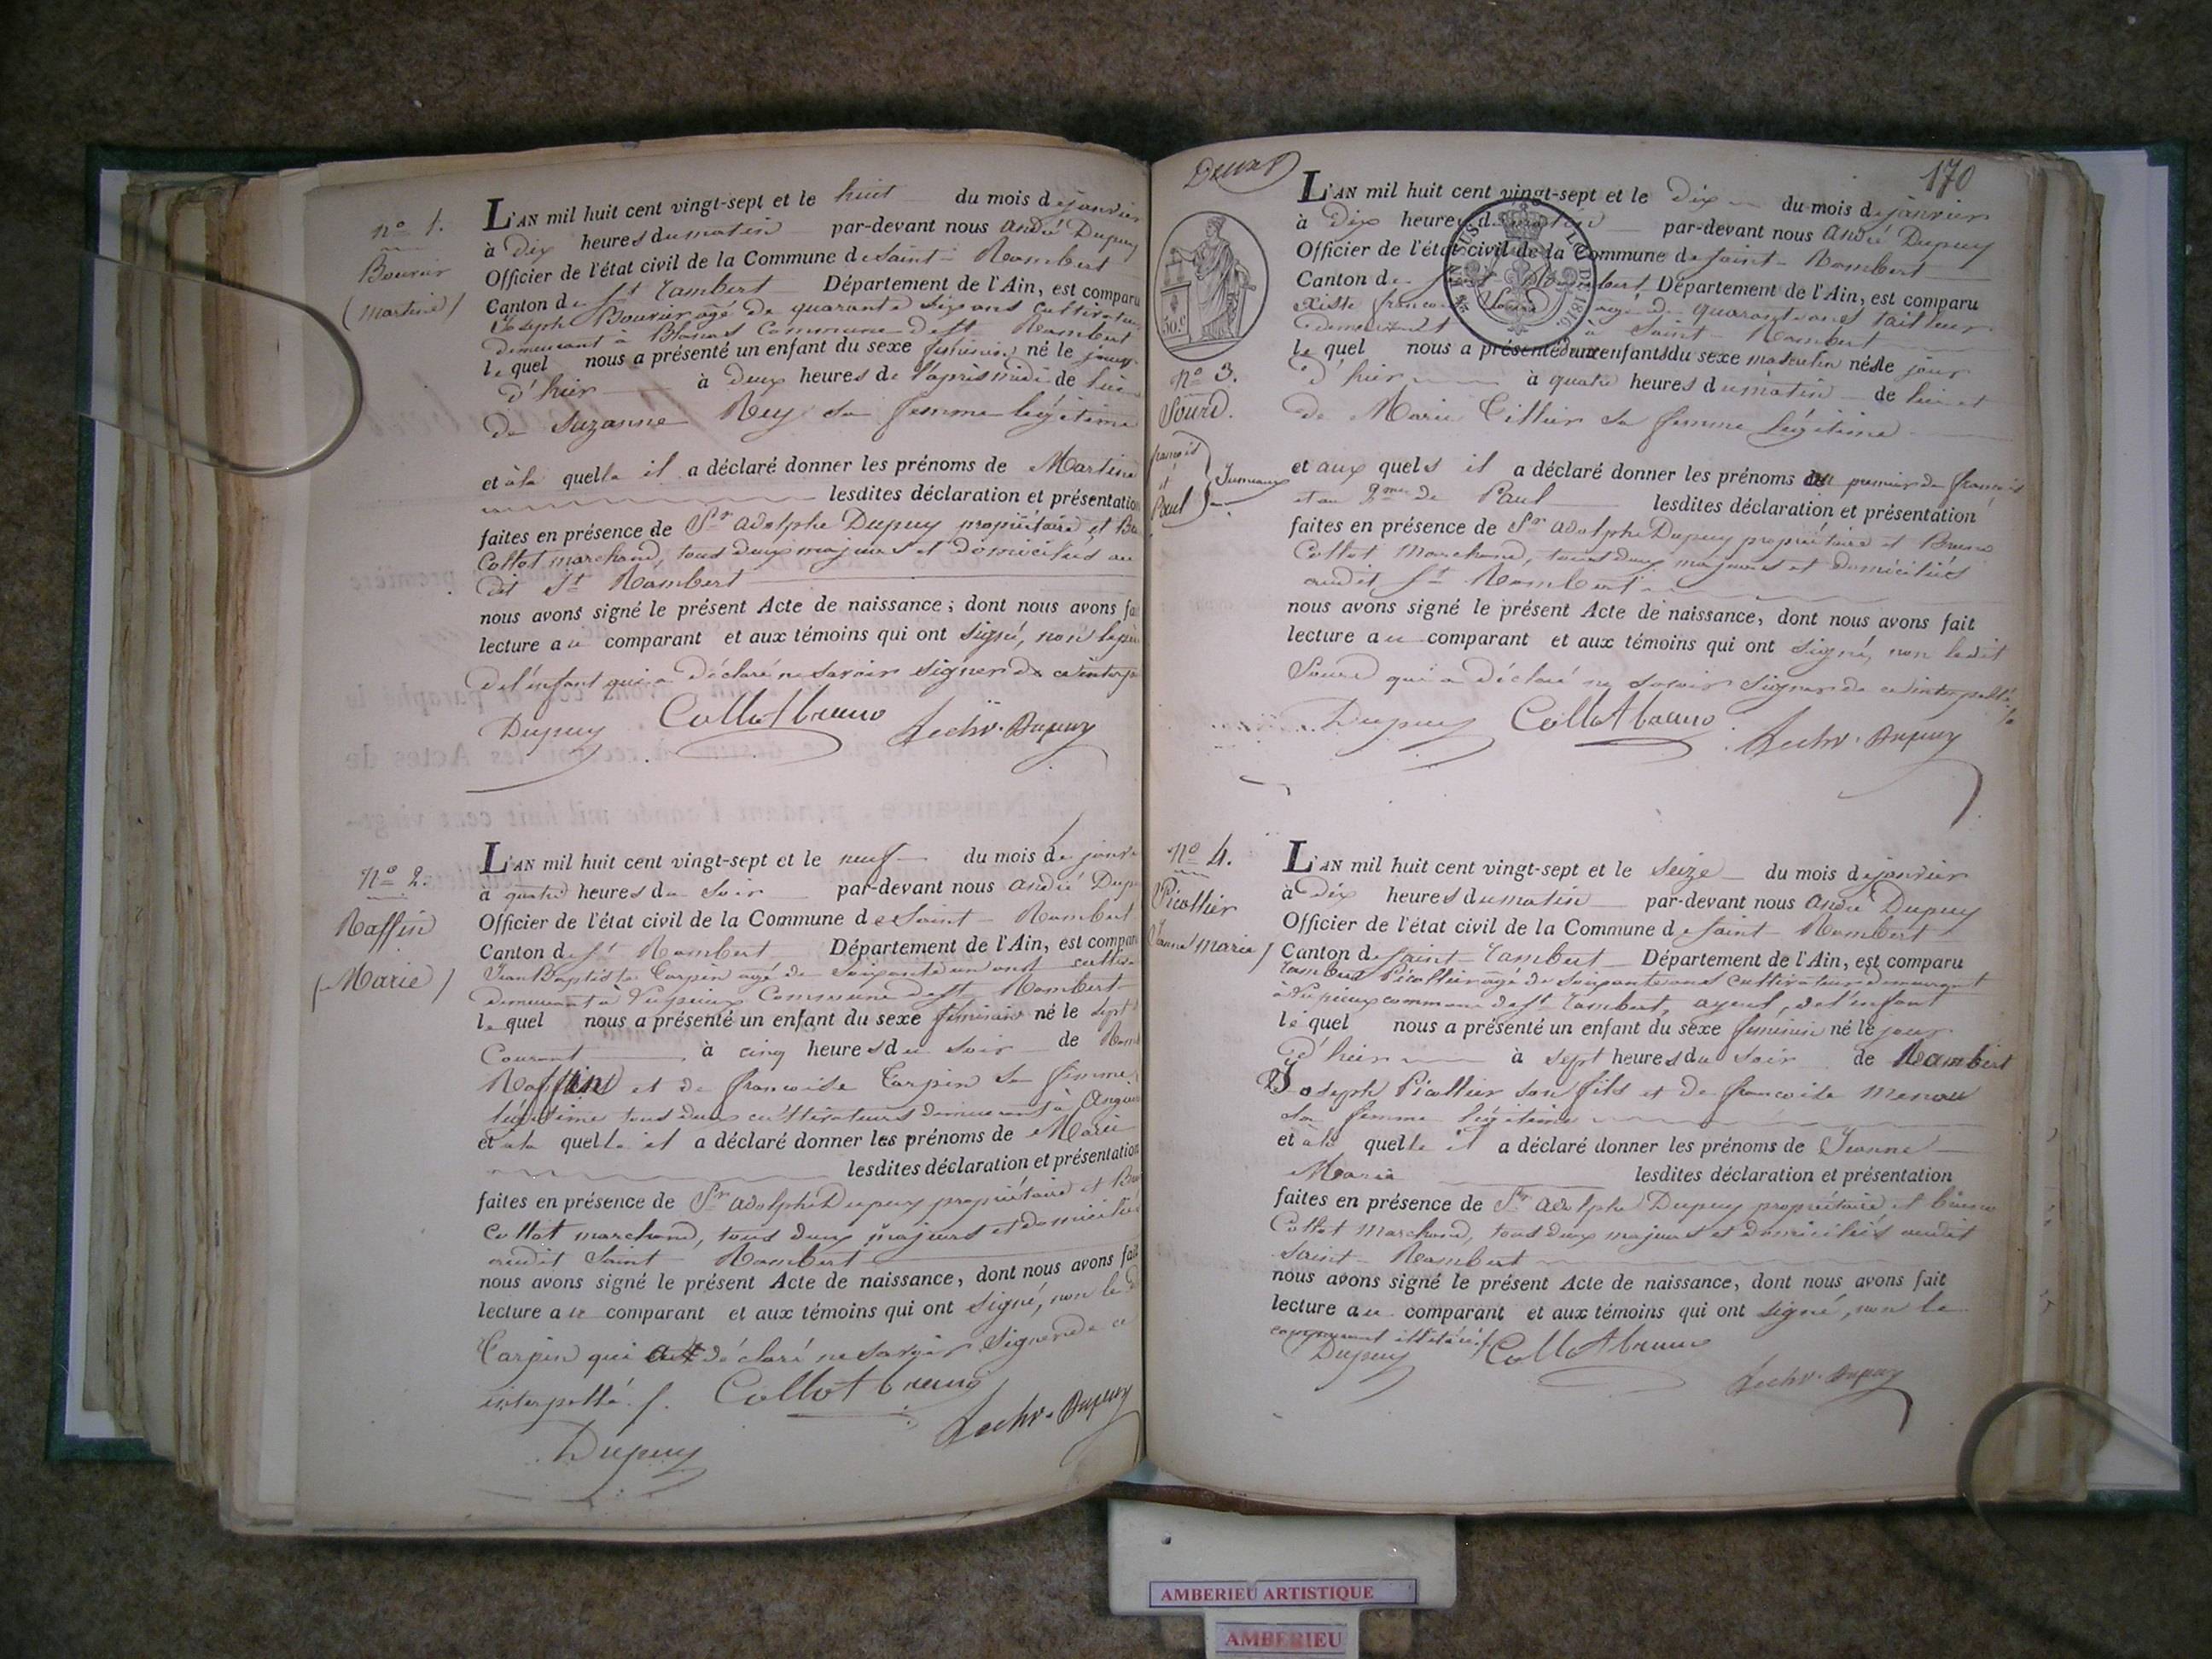 nº 1.
Bouvier
(Martine)
L'AN mil huit cent vingt-sept et le huit du mois de janvier
à Dix heures du matin par-devant nous André Dupuy
Officier de l'état civil de la Commune de Saint-Rambert
Canton de St Rambert Département de l'Ain, est comparu
Joseph Bouvier agé de quarante six ans cultivateur
demeurant à Blanas Commune de St Rambert
le quel nous a présenté un enfant du sexe feminin né le jour
d'hier à deux heures de l'après midi de lui
de Suzanne Rey sa femme légitime
et à la quelle il a déclaré donner les prénoms de Martine
lesdites déclaration et présentation
faites en présence de Sr Adolphe Dupuy propriétaire et
Collot marchand, tous deux majeurs et domiciliés au
dit St Rambert
nous avons signé le présent Acte de naissance; dont nous avons
lecture au comparant et aux témoins qui ont signé, non le père
de l'enfant qui a déclaré ne savoir signer de ce
Dupuy Collot bruno Dupuy
nº 2.
Raffin
(Marie)
L'AN mil huit cent vingt-sept et le neuf du mois de
à quatre heures du soir par-devant nous André
Officier de l'état civil de la Commune de Saint-Rambert
Canton de St Rambert Département de l'Ain, est comparu
Jean Baptiste Carpin agé de soixante un ans
demeurant à Vupieux Commune de St Rambert
le quel nous a présenté un enfant du sexe feminin né le sept
Courant à cinq heures du soir de
Raffin et de francoise Carpin sa femme
légitime tous deux cultivateurs demeurant à
et à la quelle il a déclaré donner les prénoms de Marie
lesdites déclaration et présentation
faites en présence de Sr Adolphe Dupuy propriétaire et
Collot marchand, tous deux majeurs et domiciliés
audit Saint-Rambert
nous avons signé le présent Acte de naissance, dont nous avons fait
lecture au comparant et aux témoins qui ont signé, non le
Carpin qui a déclaré ne savoir signer de ce
interpellé. Collot bruno
Dupuy
Dupuy
170
L'AN mil huit cent vingt-sept et le Dix du mois de janvier
à Dix heures du matin par-devant nous André Dupuy
Officier de l'état civil de la Commune de Saint-Rambert
Canton de Saint Rambert, Département de l'Ain, est comparu
francois Sourd agé de quarante ans tailleur
demeurant à Saint-Rambert
le quel nous a présenté deux enfants du sexe masculin nés le jour
d'hier à quatre heures du matin de lui et
de Marie Tillier sa femme légitime
nº 3.
Sourd.
françois
et
Paul
Jumeaux
50.c
et aux quels il a déclaré donner les prénoms au premier de françois
et au 2me de Paul lesdites déclaration et présentation
faites en présence de Sr Adolphe Dupuy propriétaire et Bruno
Collot Marchand, tous deux majeurs et domiciliés
audit St Rambert
nous avons signé le présent Acte de naissance, dont nous avons fait
lecture au comparant et aux témoins qui ont signé, non ledit
Sourd qui a déclaré ne savoir signer de ce interpellé
Dupuy Collot bruno Dupuy
nº 4.
Picollier
Jeanne Marie
L'AN mil huit cent vingt-sept et le seize du mois de janvier
à Dix heures du matin par-devant nous André Dupuy
Officier de l'état civil de la Commune de Saint-Rambert
Canton de Saint-Rambert Département de l'Ain, est comparu
Rambert Picollier agé de soixante ans cultivateur demeurant
à Vupieux commune de St Rambert, ayeul de l'enfant
le quel nous a présenté un enfant du sexe feminin né le jour
d'hier à sept heures du soir de Rambert
Joseph Picollier son fils et de francoise
sa femme légitime
et à la quelle il a déclaré donner les prénoms de Jeanne
Marie lesdites déclaration et présentation
faites en présence de Sr Adolphe Dupuy propriétaire et bruno
Collot Marchand, tous deux majeurs et domiciliés audit
Saint-Rambert
nous avons signé le présent Acte de naissance, dont nous avons fait
lecture au comparant et aux témoins qui ont signé, non le
comparant illitéré.
Dupuy Collot bruno
Dupuy
AMBERIEU ARTISTIQUE
AMBERIEU